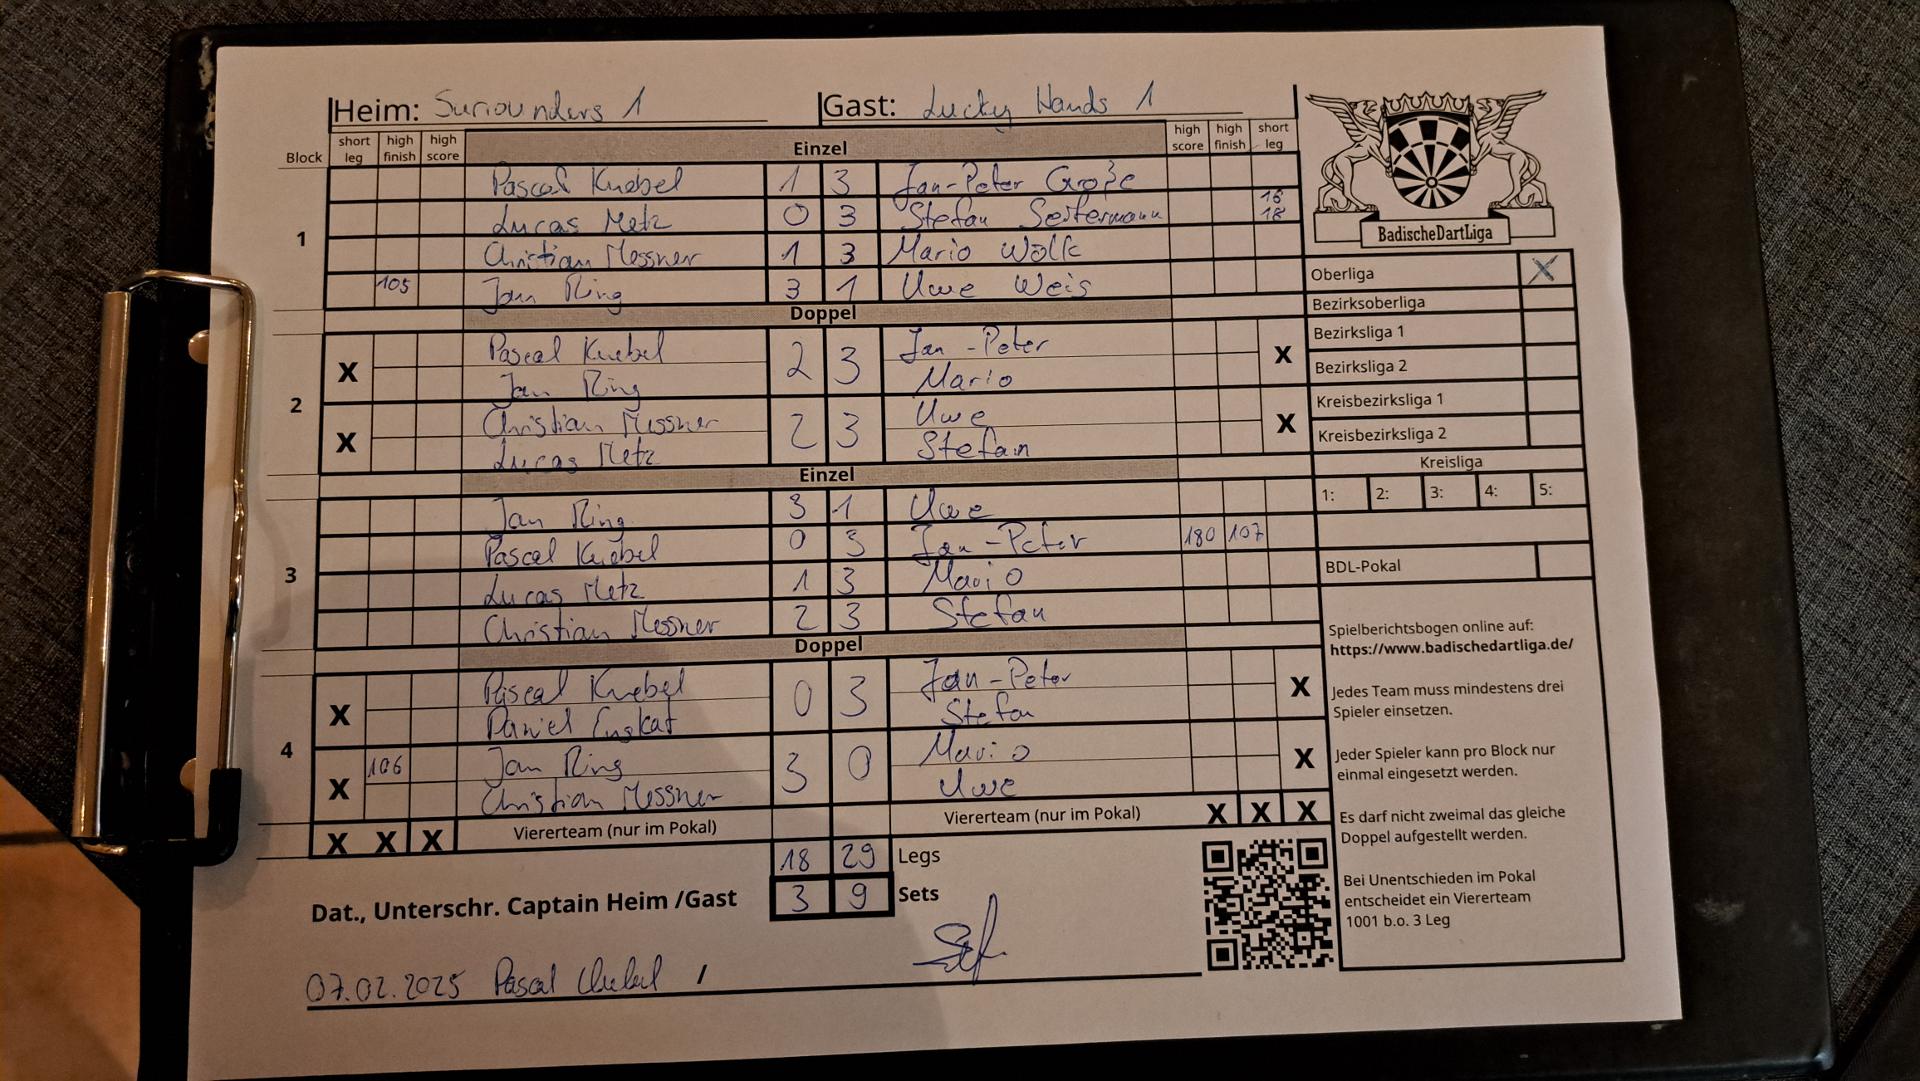 Heim: Surrounders 1 Gast: Lucky Hands 1
Block short leg high finish high score Einzel high score high finish short leg
1
Pascal Knebel 1 3 Jan-Peter Große
Lucas Metz 0 3 Stefan Seitermann 18 18
Christian Messner 1 3 Mario Wölk
105 Jan Ring 3 1 Uwe Weis
Doppel
2
X Pascal Knebel 2 3 Jan-Peter X
Jan Ring Mario
X Christian Messner 2 3 Uwe X
Lucas Metz Stefan
Einzel
3
Jan Ring 3 1 Uwe
Pascal Knebel 0 3 Jan-Peter 180 107
Lucas Metz 1 3 Mario
Christian Messner 2 3 Stefan
Doppel
4
X Pascal Knebel 0 3 Jan-Peter X
Daniel Stefan
X 106 Jan Ring 3 0 Mario X
Christian Messner Uwe
X X X Viererteam (nur im Pokal) Viererteam (nur im Pokal) X X X
18 29 Legs
3 9 Sets
Dat., Unterschr. Captain Heim /Gast
07.02.2025 Pascal Knebel /
BadischeDartLiga
Oberliga X
Bezirksoberliga
Bezirksliga 1
Bezirksliga 2
Kreisbezirksliga 1
Kreisbezirksliga 2
Kreisliga
1: 2: 3: 4: 5:
BDL-Pokal
Spielberichtsbogen online auf:
https://www.badischedartliga.de/
Jedes Team muss mindestens drei
Spieler einsetzen.
Jeder Spieler kann pro Block nur
einmal eingesetzt werden.
Es darf nicht zweimal das gleiche
Doppel aufgestellt werden.
Bei Unentschieden im Pokal
entscheidet ein Viererteam
1001 b.o. 3 Leg